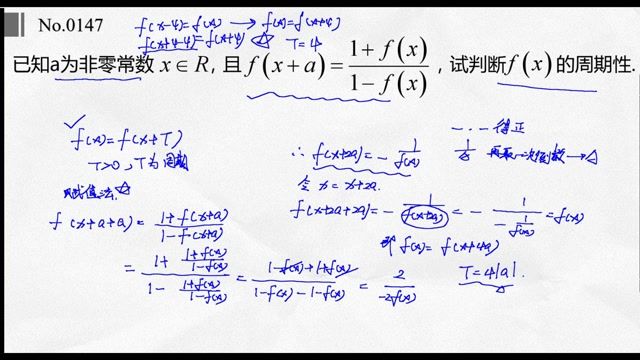 No.0147
f(x-4)=f(x) → f(x)=f(x+4)
f(x+4-4)=f(x+4) T=4
已知a为非零常数 x∈R, 且 f(x+a)=\frac{1+f(x)}{1-f(x)}, 试判断f(x)的周期性.
f(x)=f(x+T)
T>0, T为周期
赋值法:
f(x+a+a)=\frac{1+f(x+a)}{1-f(x+a)}
=\frac{1+\frac{1+f(x)}{1-f(x)}}{1-\frac{1+f(x)}{1-f(x)}}=\frac{1-f(x)+1+f(x)}{1-f(x)-1-f(x)}=\frac{2}{-2f(x)}
∴ f(x+2a)=-\frac{1}{f(x)}
令 x=x+2a.
f(x+2a+2a)=-\frac{1}{f(x+2a)}=-\frac{1}{-\frac{1}{f(x)}}=f(x)
即 f(x)=f(x+4a)
T=4|a|.
一·一得正
\frac{1}{△} 再取一次倒数→△